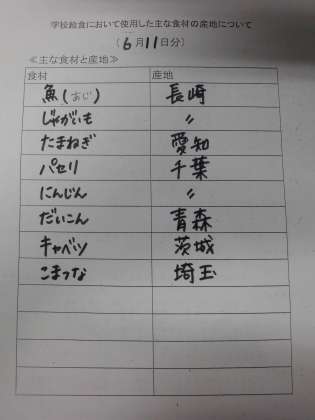 学校給食において使用した主な食材の産地について
(6月11日分)
≪主な食材と産地≫
食材 産地
魚(あじ) 長崎
じゃがいも 〃
たまねぎ 愛知
パセリ 千葉
にんじん 〃
だいこん 青森
キャベツ 茨城
こまつな 埼玉